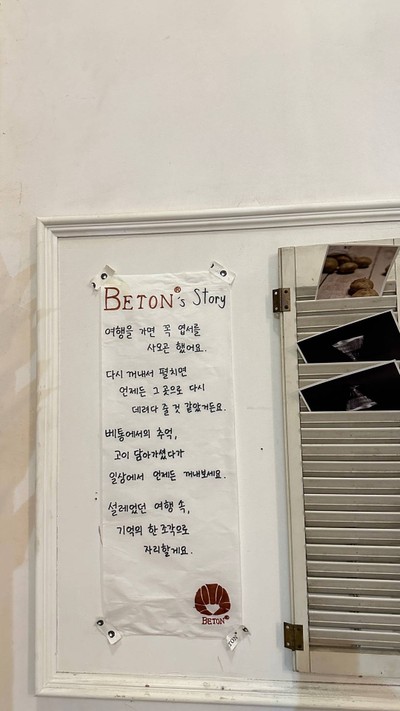 BETON®'s Story
여행을 가면 꼭 엽서를
사오곤 했어요.
다시 꺼내서 펼치면
언제든 그 곳으로 다시
데려다 줄 것 같았거든요.
베통에서의 추억,
고이 담아가셨다가
일상에서 언제든 꺼내보세요.
설레었던 여행 속,
기억의 한 조각으로
자리할게요.
BETON®